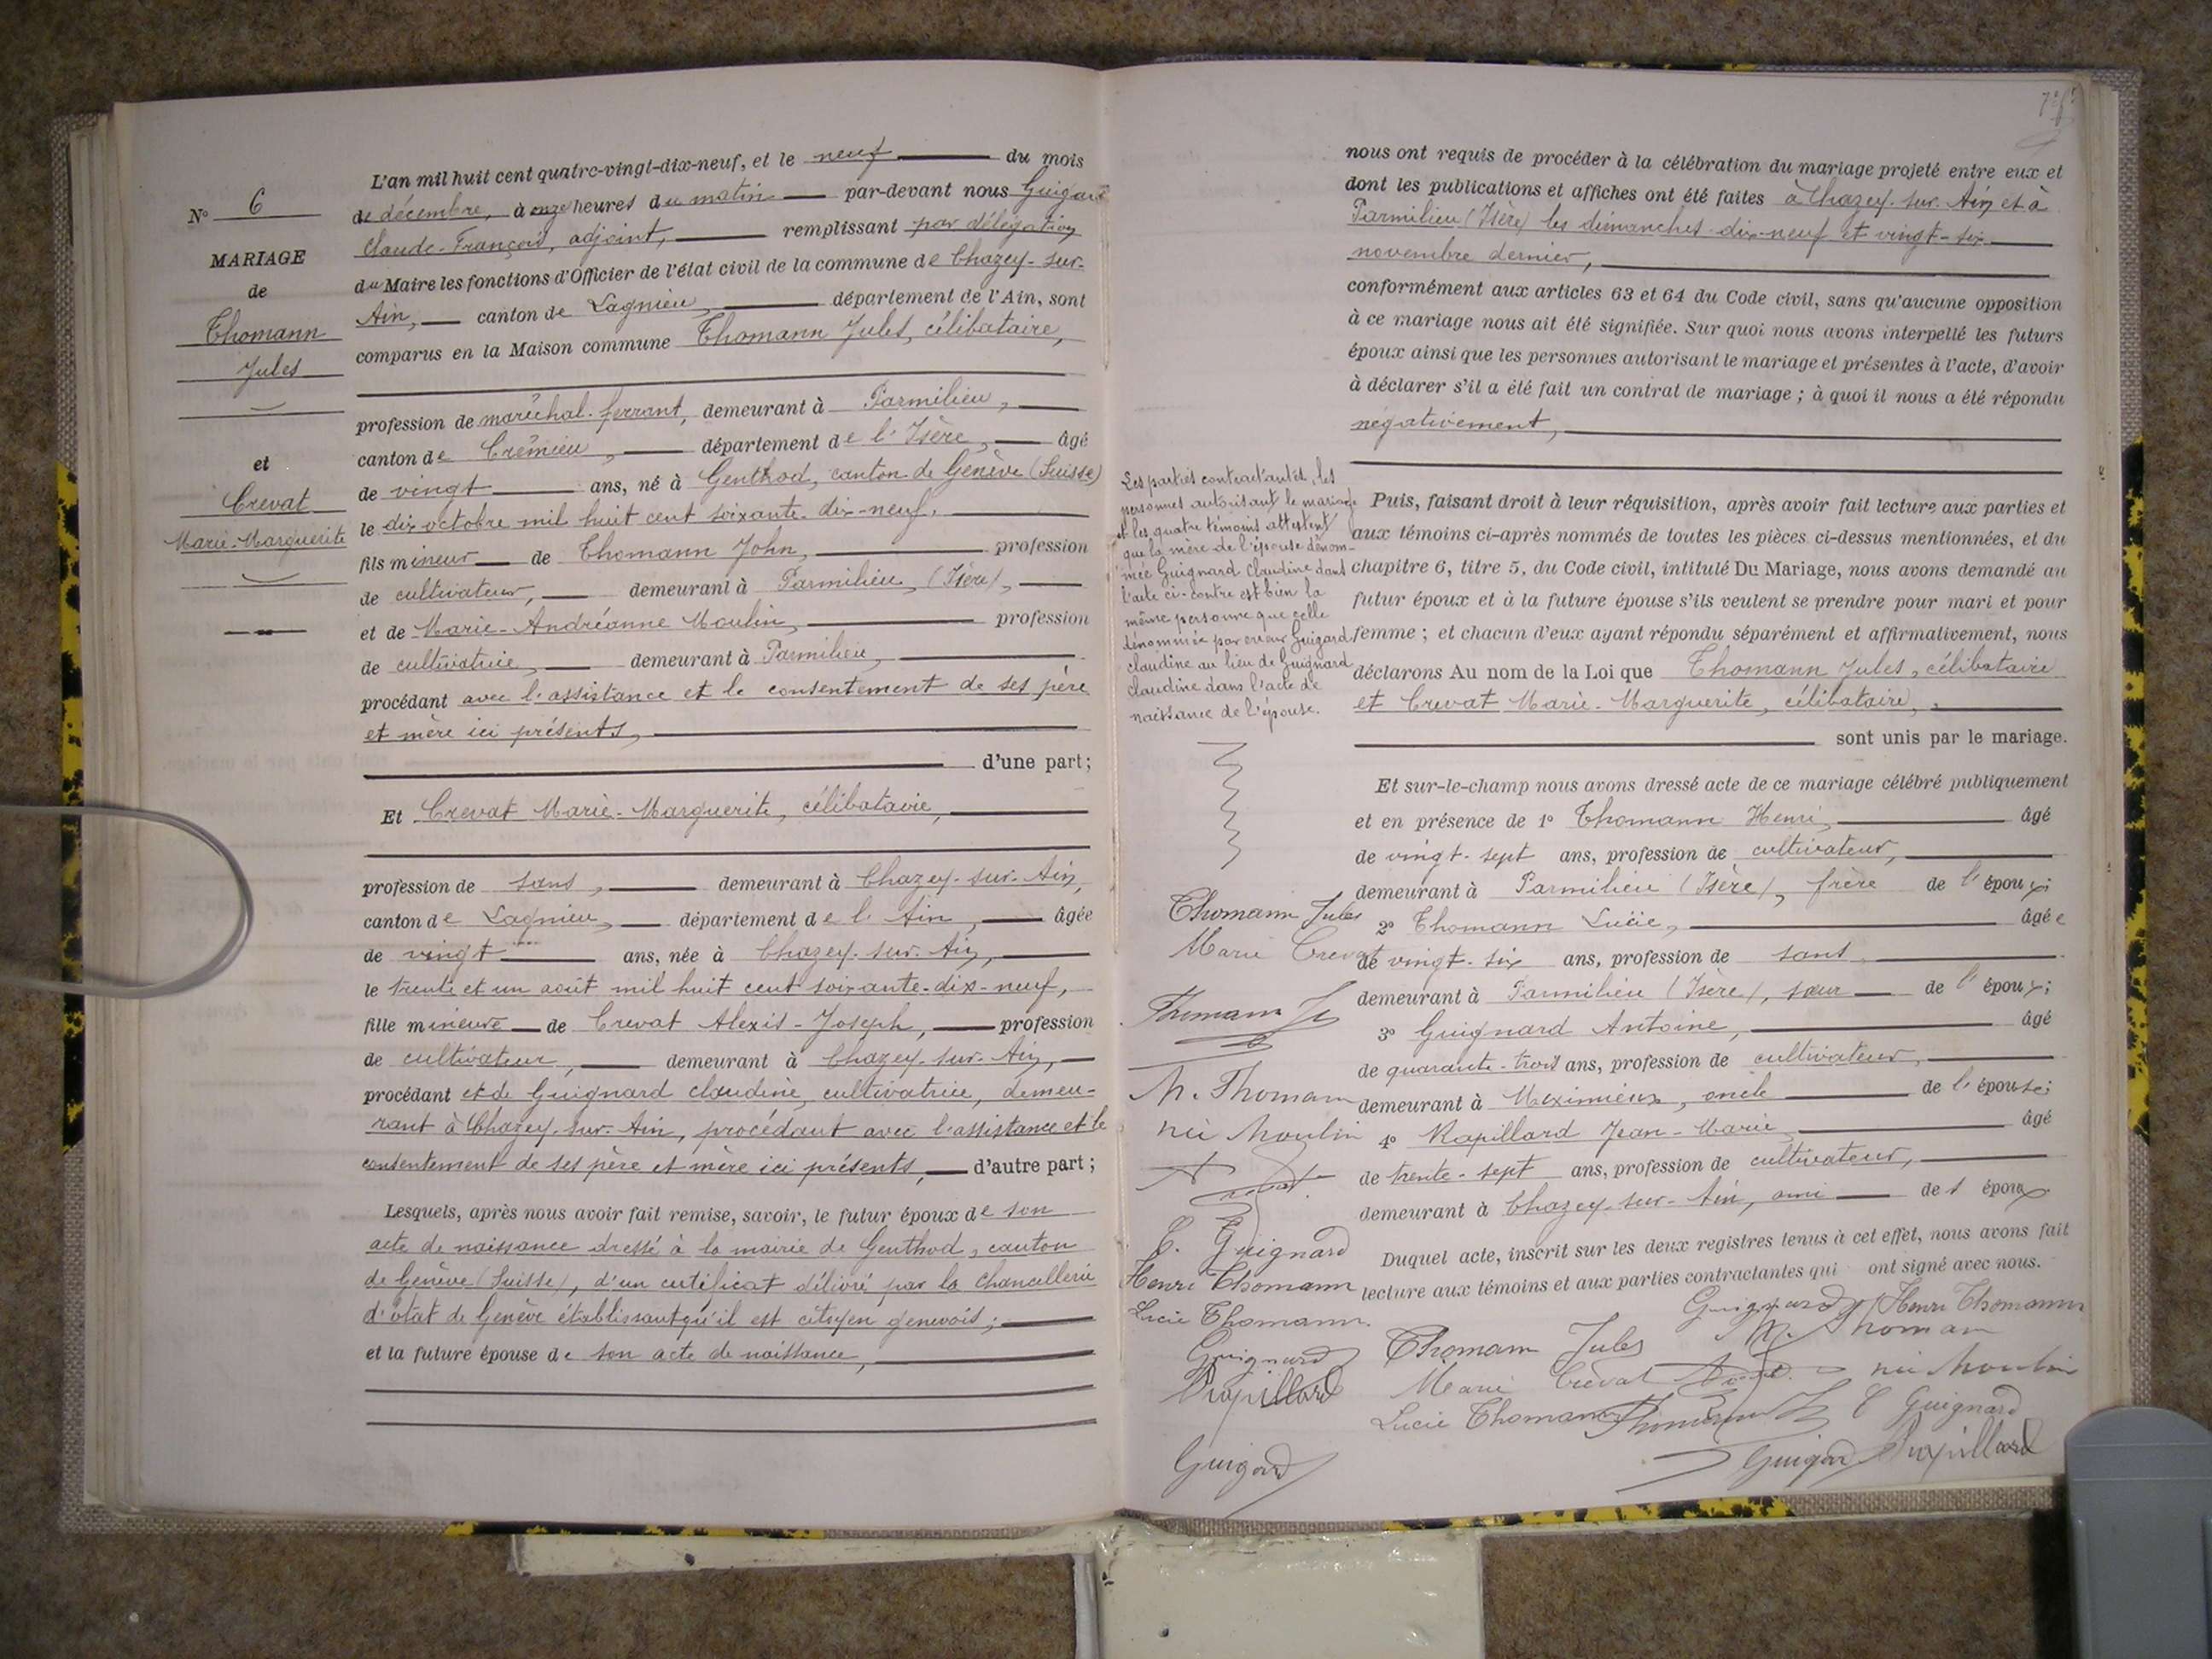 N° 6
MARIAGE
de
Thomann
Jules
et
Crevat
Marie-Marguerite
L'an mil huit cent quatre-vingt-dix-neuf, et le neuf du mois
de décembre, à onze heures du matin par-devant nous Guigard
Claude-François, adjoint, remplissant par délégation
du Maire les fonctions d'Officier de l'état civil de la commune de Chazey-sur-
Ain, canton de Lagnieu, département de l'Ain, sont
comparus en la Maison commune Thomann Jules, célibataire,
profession de maréchal-ferrant, demeurant à Parmilieu,
canton de Crémieu, département de l'Isère, âgé
de vingt ans, né à Genthod, canton de Genève (Suisse)
le dix octobre mil huit cent soixante-dix-neuf,
fils mineur de Thomann John, profession
de cultivateur, demeurant à Parmilieu, (Isère),
et de Marie-Andréanne Moulin, profession
de cultivatrice, demeurant à Parmilieu,
procédant avec l'assistance et le consentement de ses père
et mère ici présents,
d'une part;
Et Crevat Marie-Marguerite, célibataire,
profession de sans, demeurant à Chazey-sur-Ain,
canton de Lagnieu, département de l'Ain, âgée
de vingt ans, née à Chazey-sur-Ain,
le trente et un août mil huit cent soixante-dix-neuf,
fille mineure de Crevat Alexis-Joseph, profession
de cultivateur, demeurant à Chazey-sur-Ain,
procédant et de Guignard claudine, cultivatrice, demeu-
rant à Chazey-sur-Ain, procédant avec l'assistance et le
consentement de ses père et mère ici présents, d'autre part;
Lesquels, après nous avoir fait remise, savoir, le futur époux de son
acte de naissance dressé à la mairie de Genthod, canton
de Genève (Suisse), d'un certificat délivré par la chancellerie
d'état de Genève établissant qu'il est citoyen genevois;
et la future épouse de son acte de naissance,
nous ont requis de procéder à la célébration du mariage projeté entre eux et
dont les publications et affiches ont été faites à Chazey-sur-Ain et à
Parmilieu (Isère) les dimanches dix-neuf et vingt-six
novembre dernier,
conformément aux articles 63 et 64 du Code civil, sans qu'aucune opposition
à ce mariage nous ait été signifiée. Sur quoi nous avons interpellé les futurs
époux ainsi que les personnes autorisant le mariage et présentes à l'acte, d'avoir
à déclarer s'il a été fait un contrat de mariage; à quoi il nous a été répondu
négativement,
Puis, faisant droit à leur réquisition, après avoir fait lecture aux parties et
aux témoins ci-après nommés de toutes les pièces ci-dessus mentionnées, et du
chapitre 6, titre 5, du Code civil, intitulé Du Mariage, nous avons demandé au
futur époux et à la future épouse s'ils veulent se prendre pour mari et pour
femme; et chacun d'eux ayant répondu séparément et affirmativement, nous
déclarons Au nom de la Loi que Thomann Jules, célibataire
et Crevat Marie-Marguerite, célibataire,
sont unis par le mariage.
Et sur-le-champ nous avons dressé acte de ce mariage célébré publiquement
et en présence de 1° Thomann Henri, âgé
de vingt-sept ans, profession de cultivateur,
demeurant à Parmilieu (Isère), frère de l'époux;
2° Thomann Lucie, âgée
de vingt-six ans, profession de sans
demeurant à Parmilieu (Isère), sœur de l'époux;
3° Guignard Antoine, âgé
de quarante-trois ans, profession de cultivateur,
demeurant à Meximieux, oncle de l'épouse;
4° Rapillard Jean-Marie, âgé
de trente-sept ans, profession de cultivateur,
demeurant à Chazey-sur-Ain, ami des époux
Duquel acte, inscrit sur les deux registres tenus à cet effet, nous avons fait
lecture aux témoins et aux parties contractantes qui ont signé avec nous.
Guignard Henri Thomann
Thomann Jules M. Thoman
Marie Crevat née Moulin
Lucie Thomann Thomann J C Guignard
Guigard Rapillard
Les parties contractantes, les
personnes autorisant le mariage
et les quatre témoins attestent
que la mère de l'épouse dénom-
mée Guignard Claudine dans
l'acte ci-contre est bien la
même personne que celle
dénommée par erreur Guigard
claudine au lieu de Guignard
claudine dans l'acte de
naissance de l'épouse.
Thomann Jules
Marie Crevat
Thomann J
M. Thoman
née Moulin
C. Guignard
Henri Thomann
Lucie Thomann
Guignard
Rapillard
Guigard